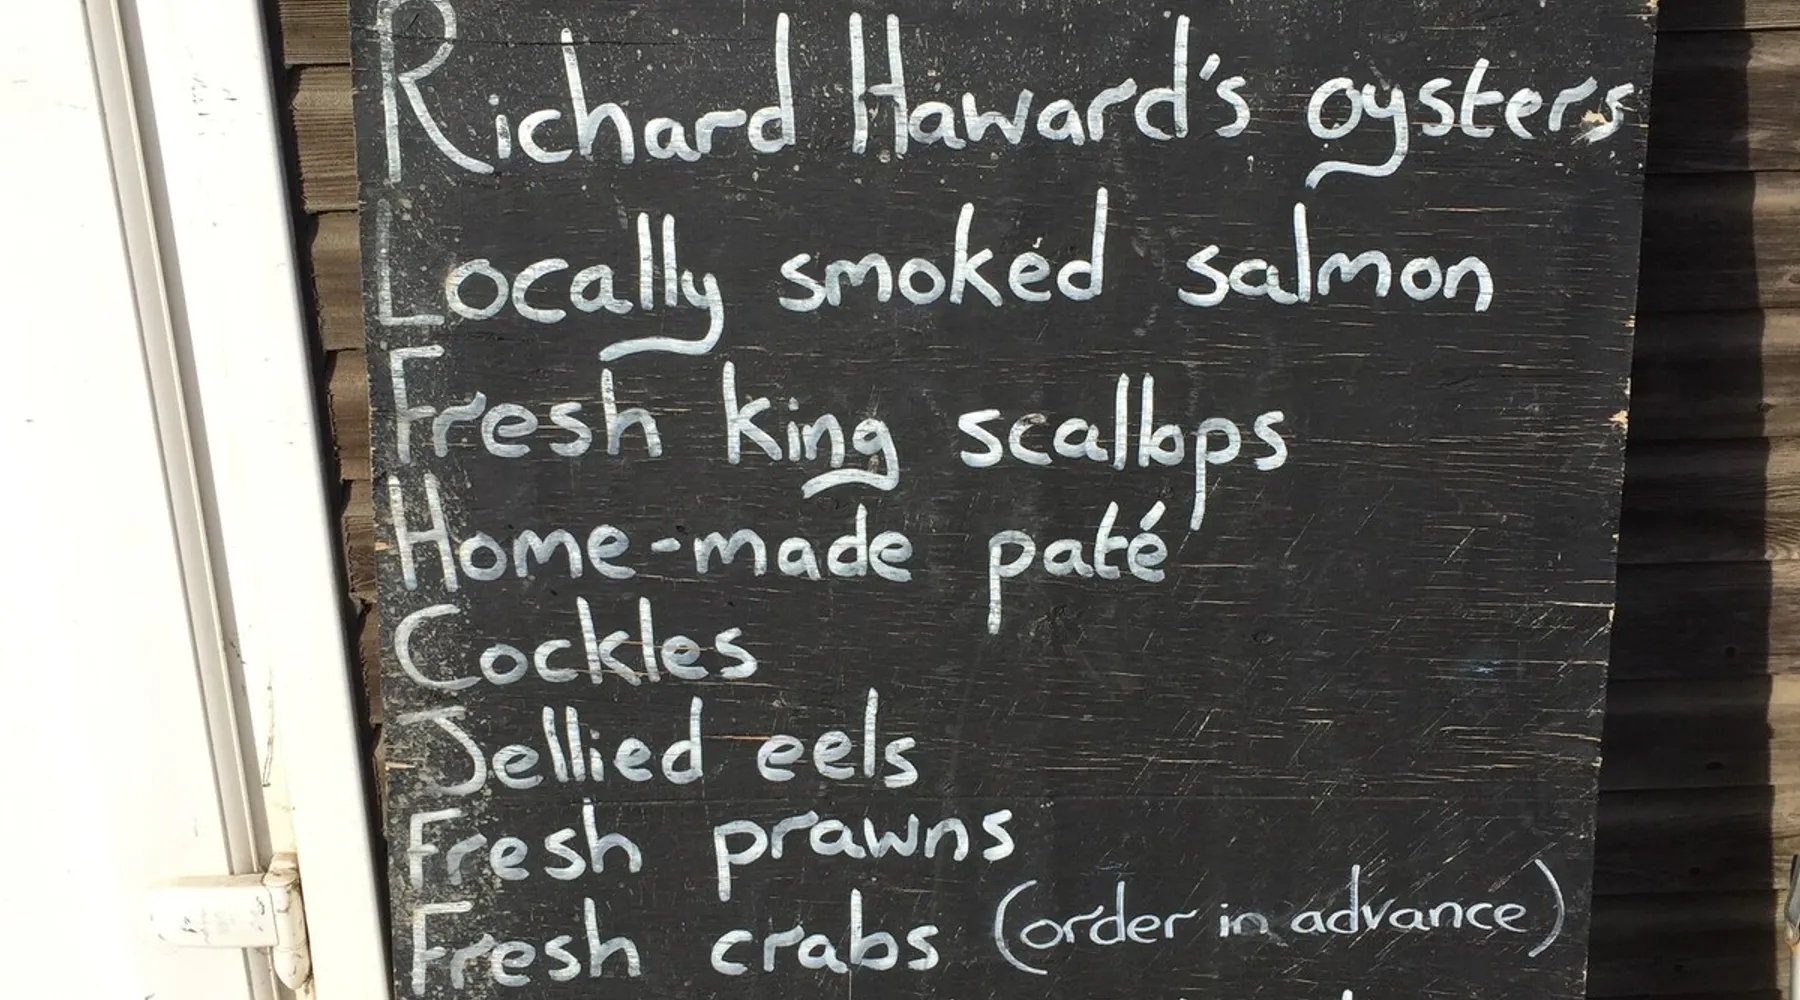 Richard Haward's oysters
Locally smoked salmon
Fresh king scallops
Home-made paté
Cockles
Jellied eels
Fresh prawns
Fresh crabs (order in advance)